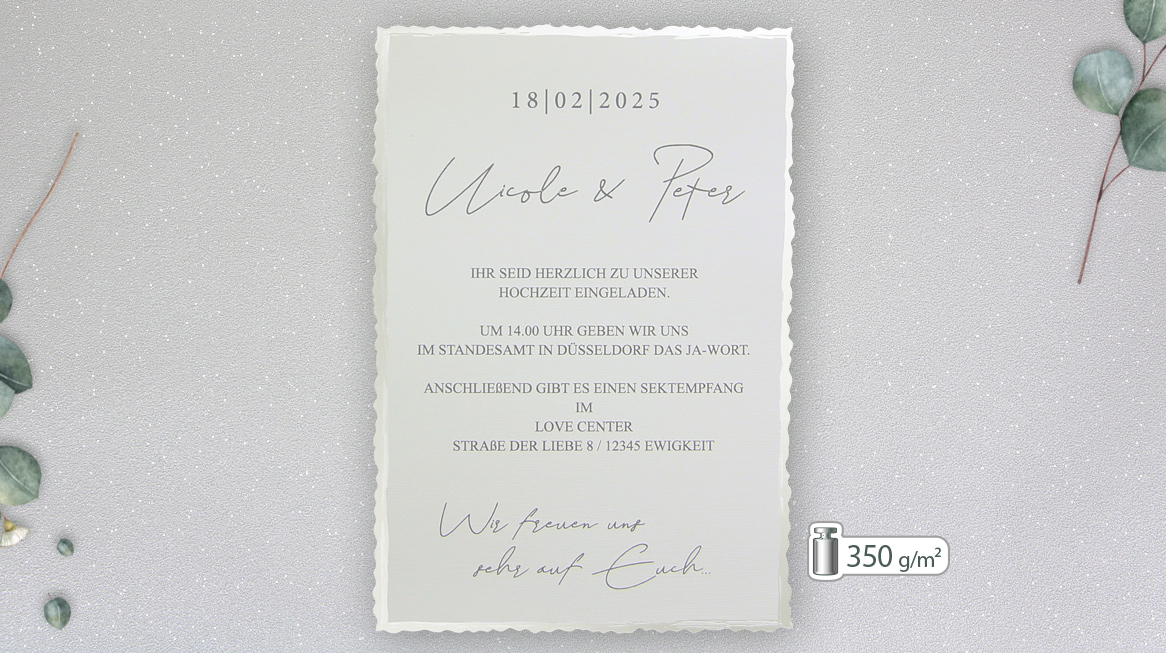 18|02|2025
Nicole & Peter
IHR SEID HERZLICH ZU UNSERER
HOCHZEIT EINGELADEN.
UM 14.00 UHR GEBEN WIR UNS
IM STANDESAMT IN DÜSSELDORF DAS JA-WORT.
ANSCHLIEßEND GIBT ES EINEN SEKTEMPFANG
IM
LOVE CENTER
STRAßE DER LIEBE 8 / 12345 EWIGKEIT
Wir freuen uns
sehr auf Euch...
350 g/m²